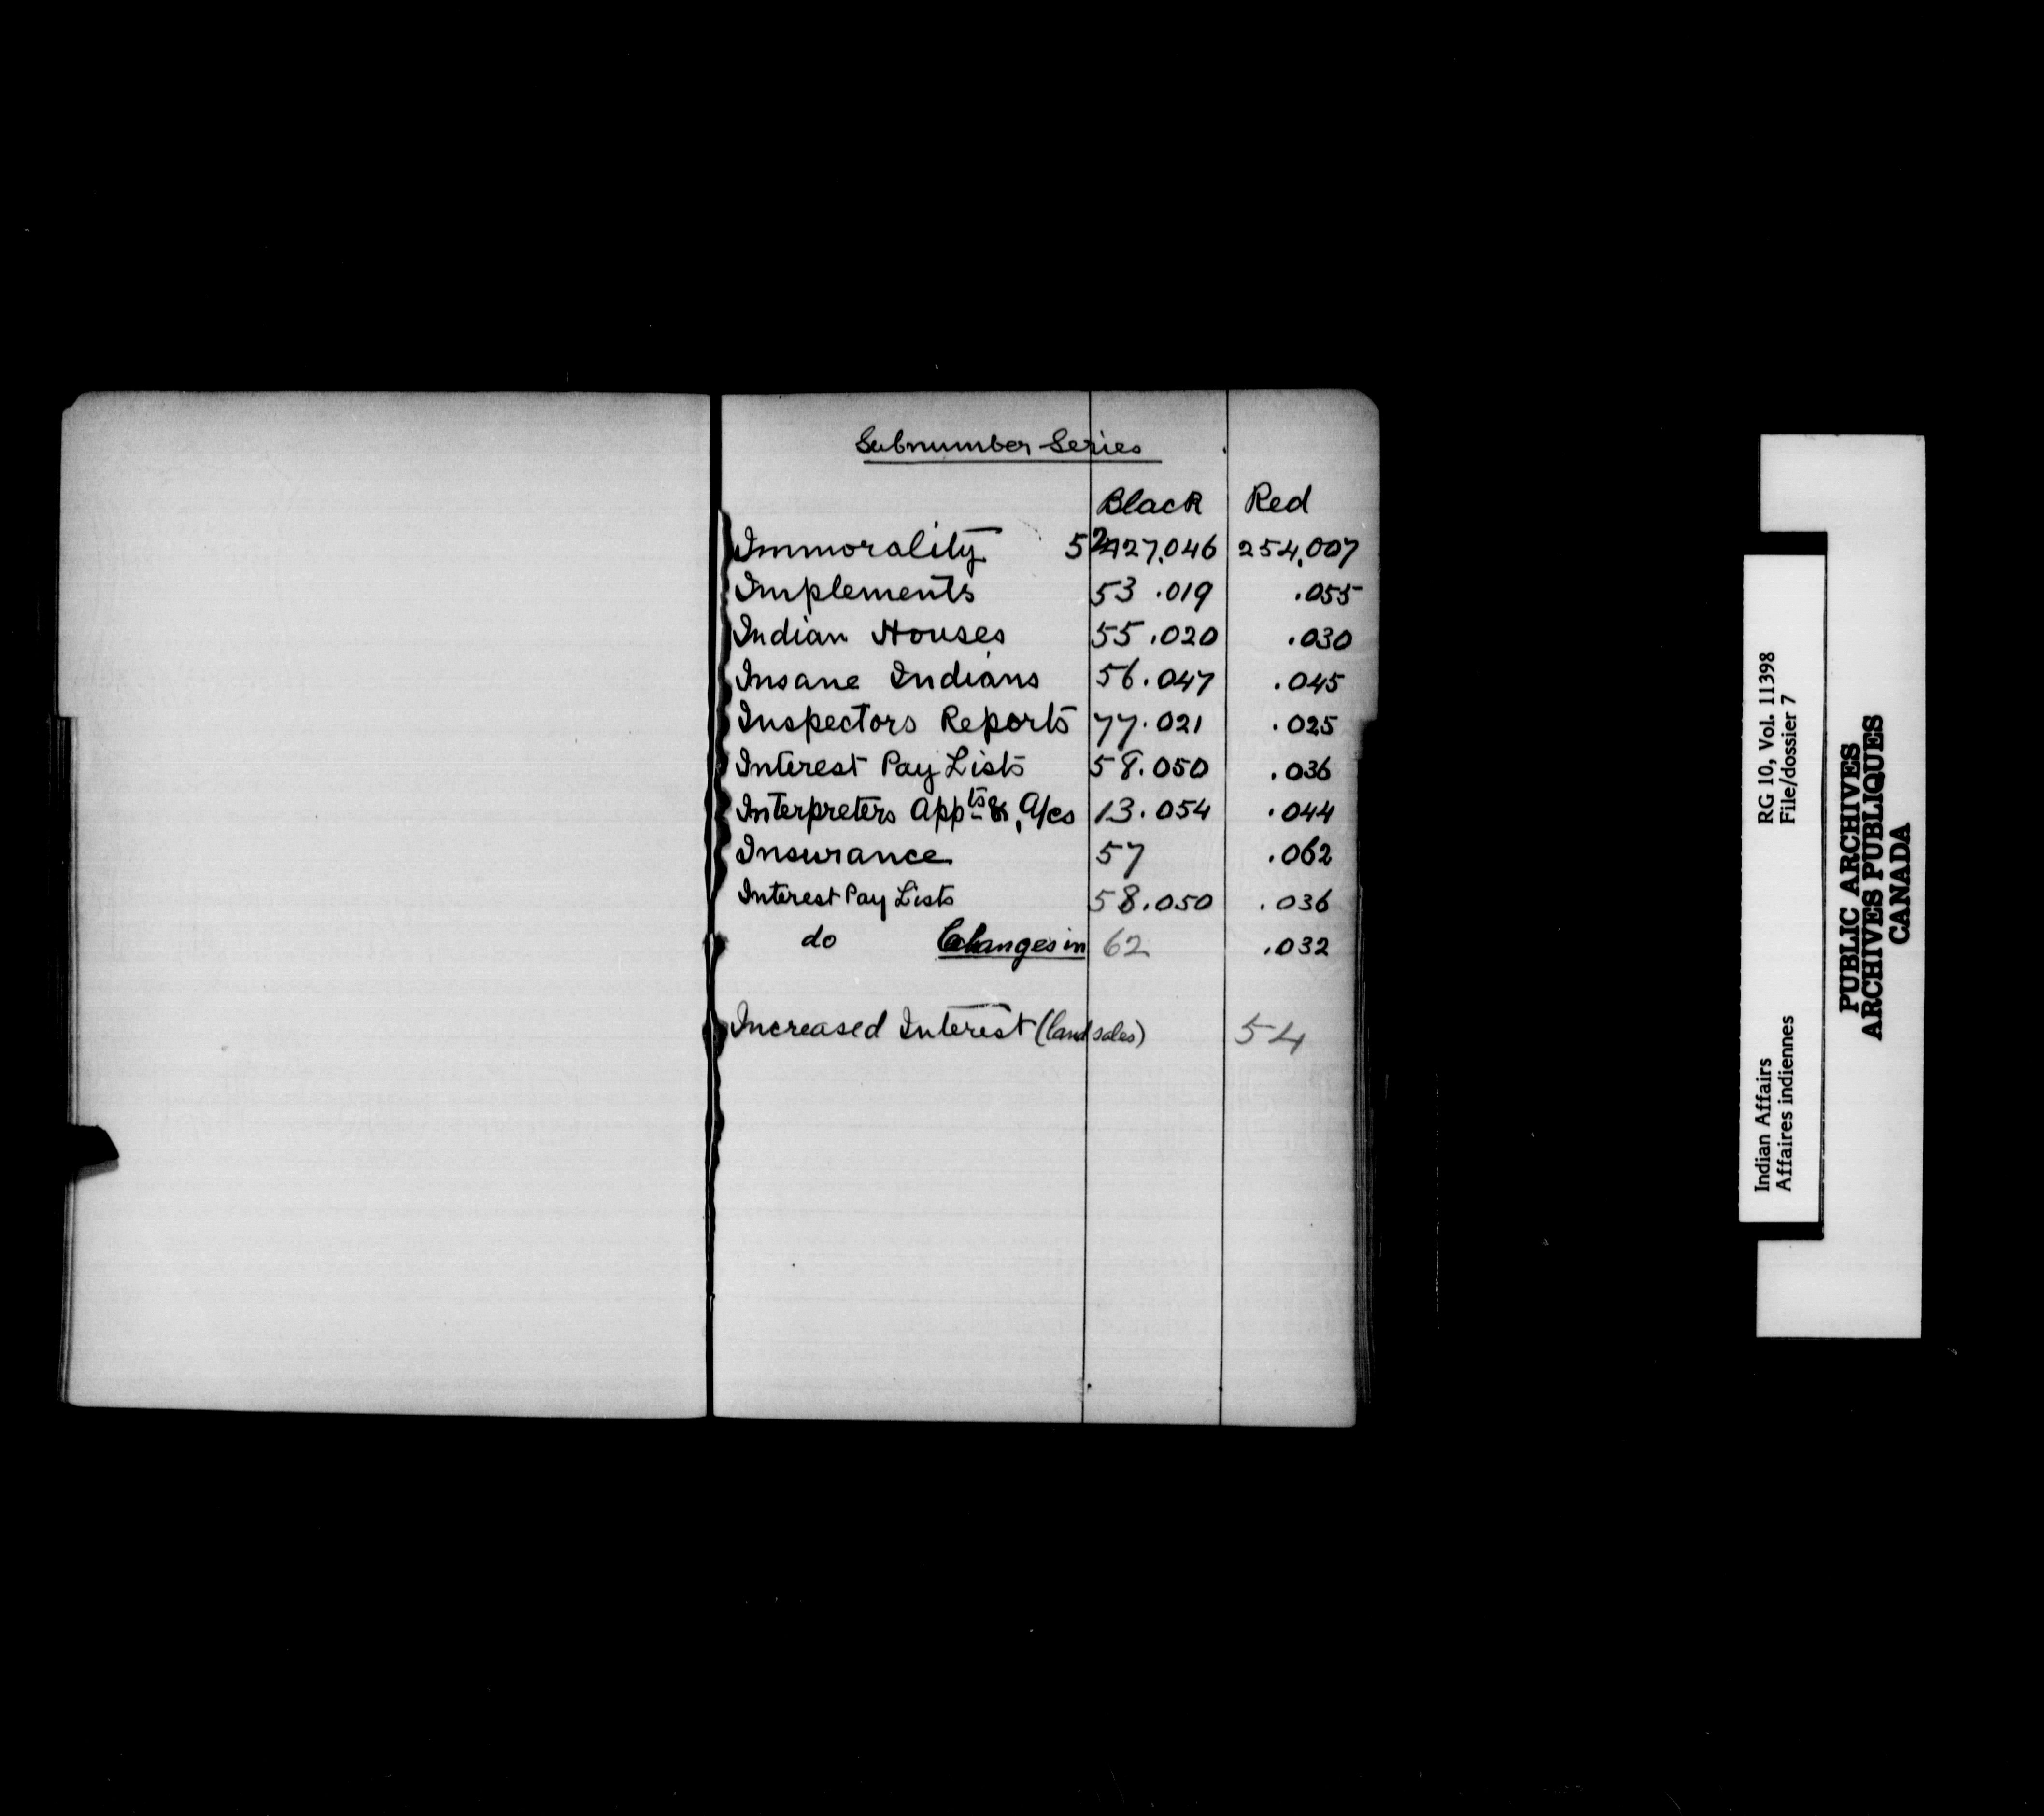 Subnumber Series
Black Red
Immorality 52 427,046 254,007
Implements 53 .019 .055
Indian Houses 55 .020 .030
Insane Indians 56.047 .045
Inspectors Reports 77.021 .025
Interest Pay Lists 58.050 .036
Interpreters Appts & A/cs 13.054 .044
Insurance 57 .062
Interest Pay Lists 58.050 .036
do Changes in 62 .032
Increased Interest (land sales) 54
Indian Affairs RG 10, Vol. 11398
Affaires indiennes File/dossier 7
PUBLIC ARCHIVES
ARCHIVES PUBLIQUES
CANADA